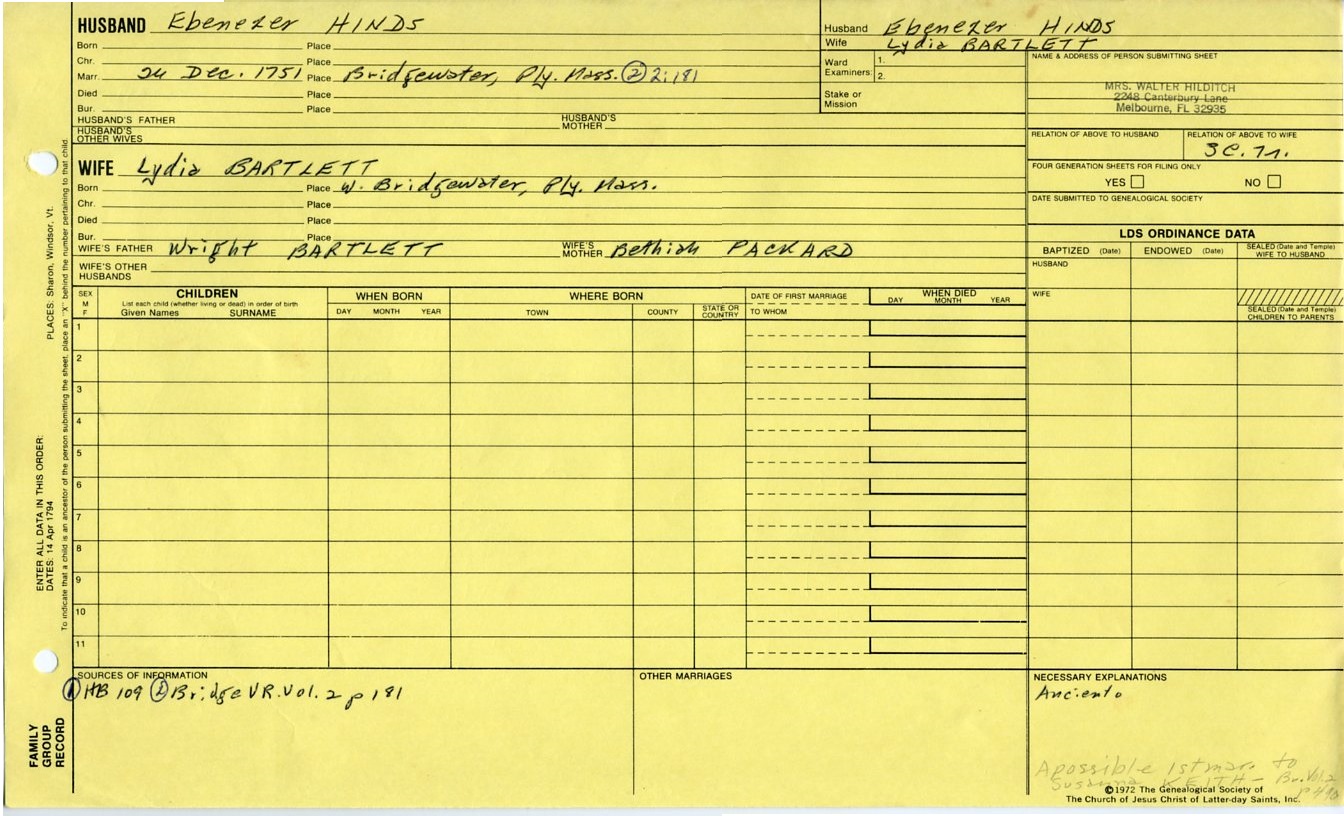 HUSBAND Ebenezer HINDS
Born Place
Chr. Place
Marr. 24 Dec. 1751 Place Bridgewater, Ply. Mass. ② 2:181
Died Place
Bur. Place
HUSBAND'S FATHER HUSBAND'S MOTHER
HUSBAND'S OTHER WIVES
Husband Ebenezer HINDS
Wife Lydia BARTLETT
Ward Examiners: 1.
2.
Stake or Mission
NAME & ADDRESS OF PERSON SUBMITTING SHEET
MRS. WALTER HILDITCH
2248 Canterbury Lane
Melbourne, FL 32935
RELATION OF ABOVE TO HUSBAND RELATION OF ABOVE TO WIFE
3C.7r.
FOUR GENERATION SHEETS FOR FILING ONLY
YES NO
DATE SUBMITTED TO GENEALOGICAL SOCIETY
WIFE Lydia BARTLETT
Born Place W. Bridgewater, Ply. Mass.
Chr. Place
Died Place
Bur. Place
WIFE'S FATHER Wright BARTLETT WIFE'S MOTHER Bethiah PACKARD
WIFE'S OTHER HUSBANDS
LDS ORDINANCE DATA
BAPTIZED (Date) ENDOWED (Date) SEALED (Date and Temple) WIFE TO HUSBAND
HUSBAND
WIFE
SEALED (Date and Temple) CHILDREN TO PARENTS
SEX M F
CHILDREN
List each child (whether living or dead) in order of birth
Given Names SURNAME
WHEN BORN
DAY MONTH YEAR
WHERE BORN
TOWN COUNTY STATE OR COUNTRY
DATE OF FIRST MARRIAGE
TO WHOM
WHEN DIED
DAY MONTH YEAR
1
2
3
4
5
6
7
8
9
10
11
SOURCES OF INFORMATION
① HB 109 ② Bridge VR. Vol. 2 p 181
OTHER MARRIAGES
NECESSARY EXPLANATIONS
A possible 1st mar. to
Susanna KEITH - Br. Vol. 2
©1972 The Genealogical Society of
The Church of Jesus Christ of Latter-day Saints, Inc.
ENTER ALL DATA IN THIS ORDER:
DATES: 14 Apr 1794 PLACES: Sharon, Windsor, Vt.
To indicate that a child is an ancestor of the person submitting the sheet, place an "X" behind the number pertaining to that child.
FAMILY
GROUP
RECORD